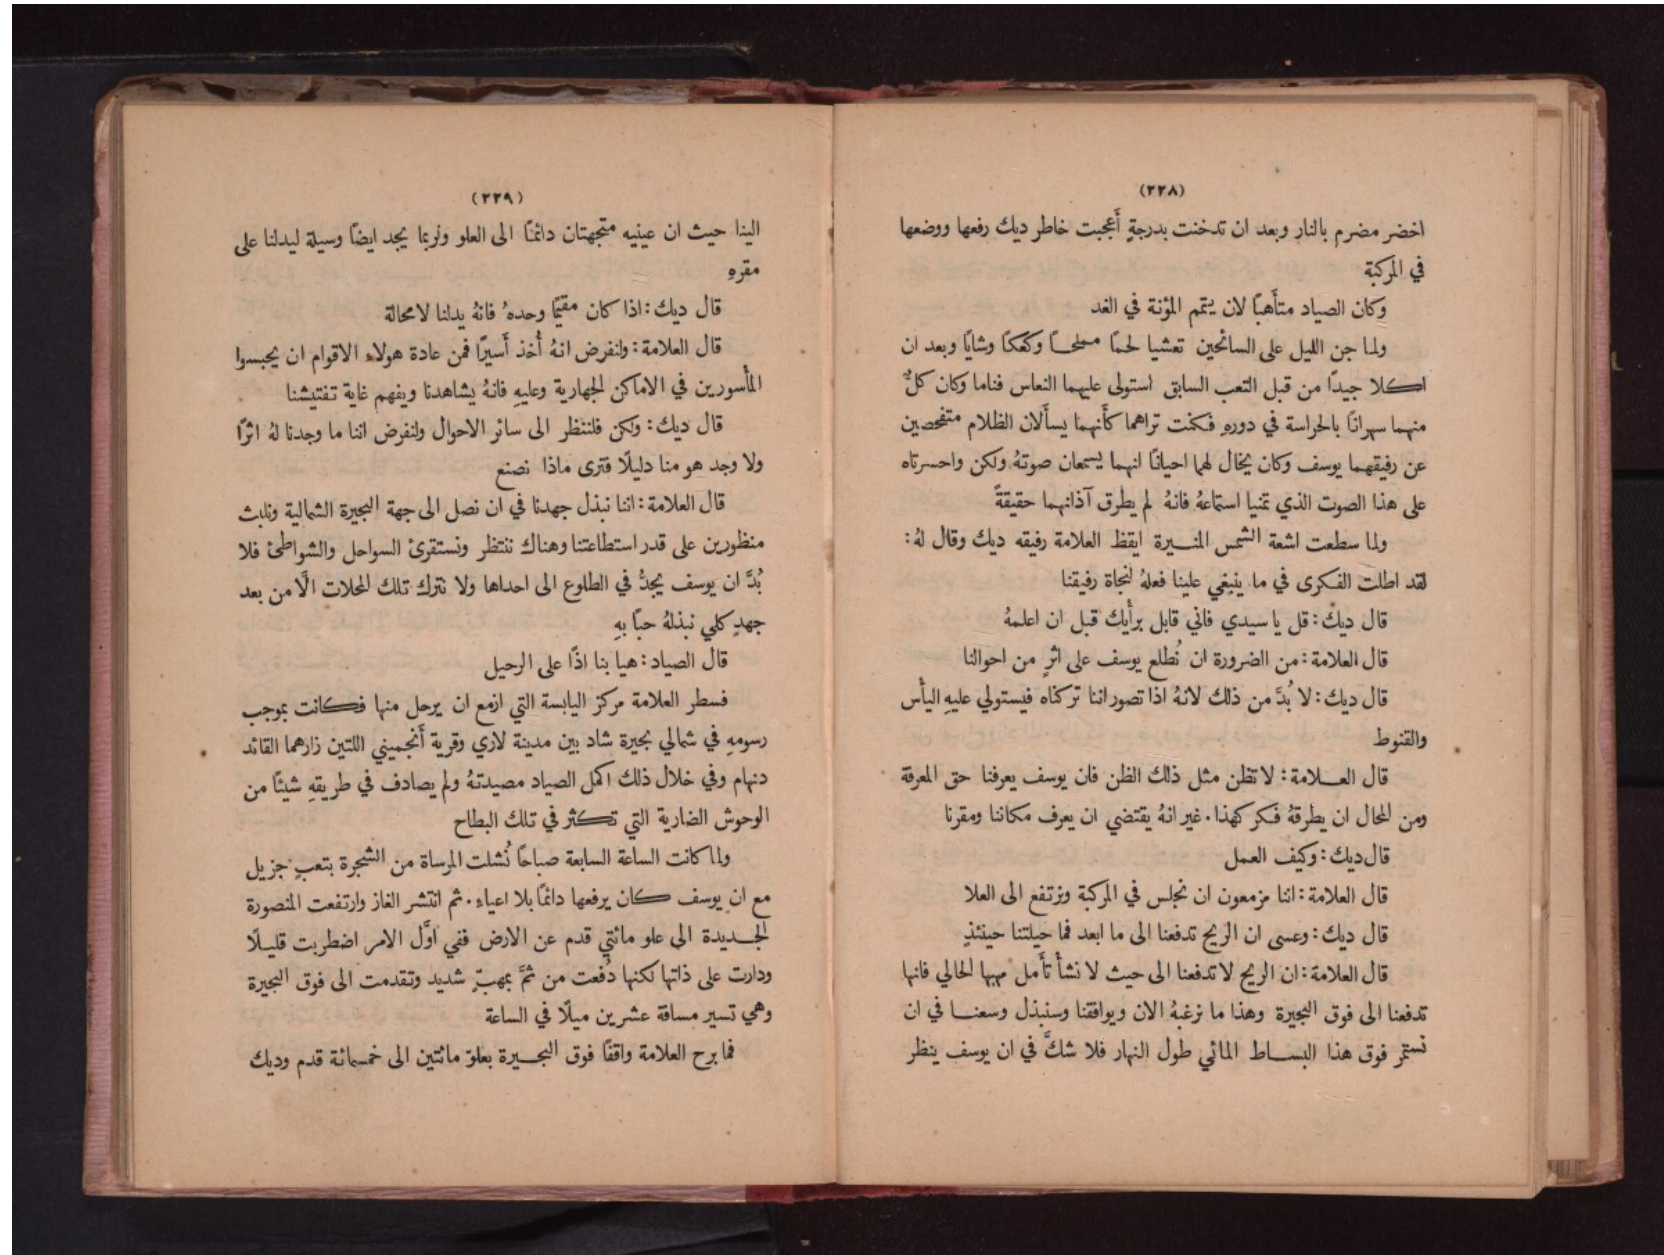 (٢٢٨)
اخضر مضرم بالنار وبعد ان تدخنت بدرجةٍ أَعجبت خاطر ديك رفعها ووضعها
في المركبة
وكان الصياد متأَهبًا لان يتمم المؤنة في الغد
ولما جن الليل على السائحين تعشيا لحمًا مملحًا وكعكًا وشايًا وبعد ان
اكلا جيدًا من قبل التعب السابق استولى عليهما النعاس فناما وكان كلٌّ
منهما سهرانًا بالحراسة في دورهِ فكنت تراهما كأَنهما يسأَلان الظلام متفحصين
عن رفيقهما يوسف وكان يخال لهما احيانًا انهما يسمعان صوتهُ ولكن واحسرتاه
على هذا الصوت الذي تمنيا استماعهُ فانهُ لم يطرق آذانهما حقيقةً
ولما سطعت اشعة الشمس المنيرة ايقظ العلامة رفيقه ديك وقال لهُ:
لقد اطلت الفكرى في ما ينبغي علينا فعلهُ لنجاة رفيقنا
قال ديك: قل يا سيدي فاني قابل برأْيك قبل ان اعلمهُ
قال العلامة: من الضرورة ان نُطلع يوسف على اثرٍ من احوالنا
قال ديك: لا بُدَّ من ذلك لانهُ اذا تصور اننا تركناه فيستولي عليهِ اليأْس
والقنوط
قال العلامة: لا تظن مثل ذلك الظن فان يوسف يعرفنا حق المعرفة
ومن المحال ان يطرقهُ فكر كهذا. غير انهُ يقتضي ان يعرف مكاننا ومقرنا
قال ديك: وكيف العمل
قال العلامة: اننا مزمعون ان نجلس في المركبة ونرتفع الى العلا
قال ديك: وعسى ان الريح تدفعنا الى ما ابعد فما حيلتنا حينئذٍ
قال العلامة: ان الريح لا تدفعنا الى حيث لا نشأْ تأَمل مهبها الحالي فانها
تدفعنا الى فوق البحيرة وهذا ما نرغبهُ الان ويوافقنا وسنبذل وسعنا في ان
نستمر فوق هذا البساط المائي طول النهار فلا شكَّ في ان يوسف ينظر
(٢٢٩)
الينا حيث ان عينيه متجهتان دائمًا الى العلو ولربما يجد ايضًا وسيلة ليدلنا على
مقرهِ
قال ديك: اذا كان مقيمًا وحدهُ فانهُ يدلنا لا محالة
قال العلامة: ولنفرض انهُ أُخذ أَسيرًا فمن عادة هولاء الاقوام ان يحبسوا
المأْسورين في الاماكن الجهارية وعليهِ فانهُ يشاهدنا ويفهم غاية تفتيشنا
قال ديك: ولكن فلننظر الى سائر الاحوال ولنفرض اننا ما وجدنا لهُ اثرًا
ولا وجد هو منا دليلًا فترى ماذا نصنع
قال العلامة: اننا نبذل جهدنا في ان نصل الى جهة البحيرة الشمالية ونلبث
منظورين على قدر استطاعتنا وهناك ننتظر ونستقرئ السواحل والشواطئ فلا
بُدَّ ان يوسف يجدُّ في الطلوع الى احداها ولا نترك تلك المحلات الَّا من بعد
جهدٍ كلي نبذلهُ حبًا بهِ
قال الصياد: هيا بنا اذًا على الرحيل
فسطر العلامة مركز اليابسة التي ازمع ان يرحل منها فكانت بموجب
رسومهِ في شمالي بحيرة شاد بين مدينة لاري وقرية أَنجميني اللتين زارهما القائد
دنهام وفي خلال ذلك اكمل الصياد مصيدتهُ ولم يصادف في طريقهِ شيئًا من
الوحوش الضارية التي تكثر في تلك البطاح
ولما كانت الساعة السابعة صباحًا نُشلت المرساة من الشجرة بتعبٍ جزيل
مع ان يوسف كان يرفعها دائمًا بلا اعياء. ثم انتشر الغاز وارتفعت المنصورة
الجديدة الى علو مائتي قدم عن الارض ففي اوَّل الامر اضطربت قليلًا
ودارت على ذاتها لكنها دُفعت من ثمَّ بمهبٍّ شديد وتقدمت الى فوق البحيرة
وهي تسير مسافة عشرين ميلًا في الساعة
فما برح العلامة واقفًا فوق البحيرة بعلوّ مائتين الى خمسمائة قدم وديك